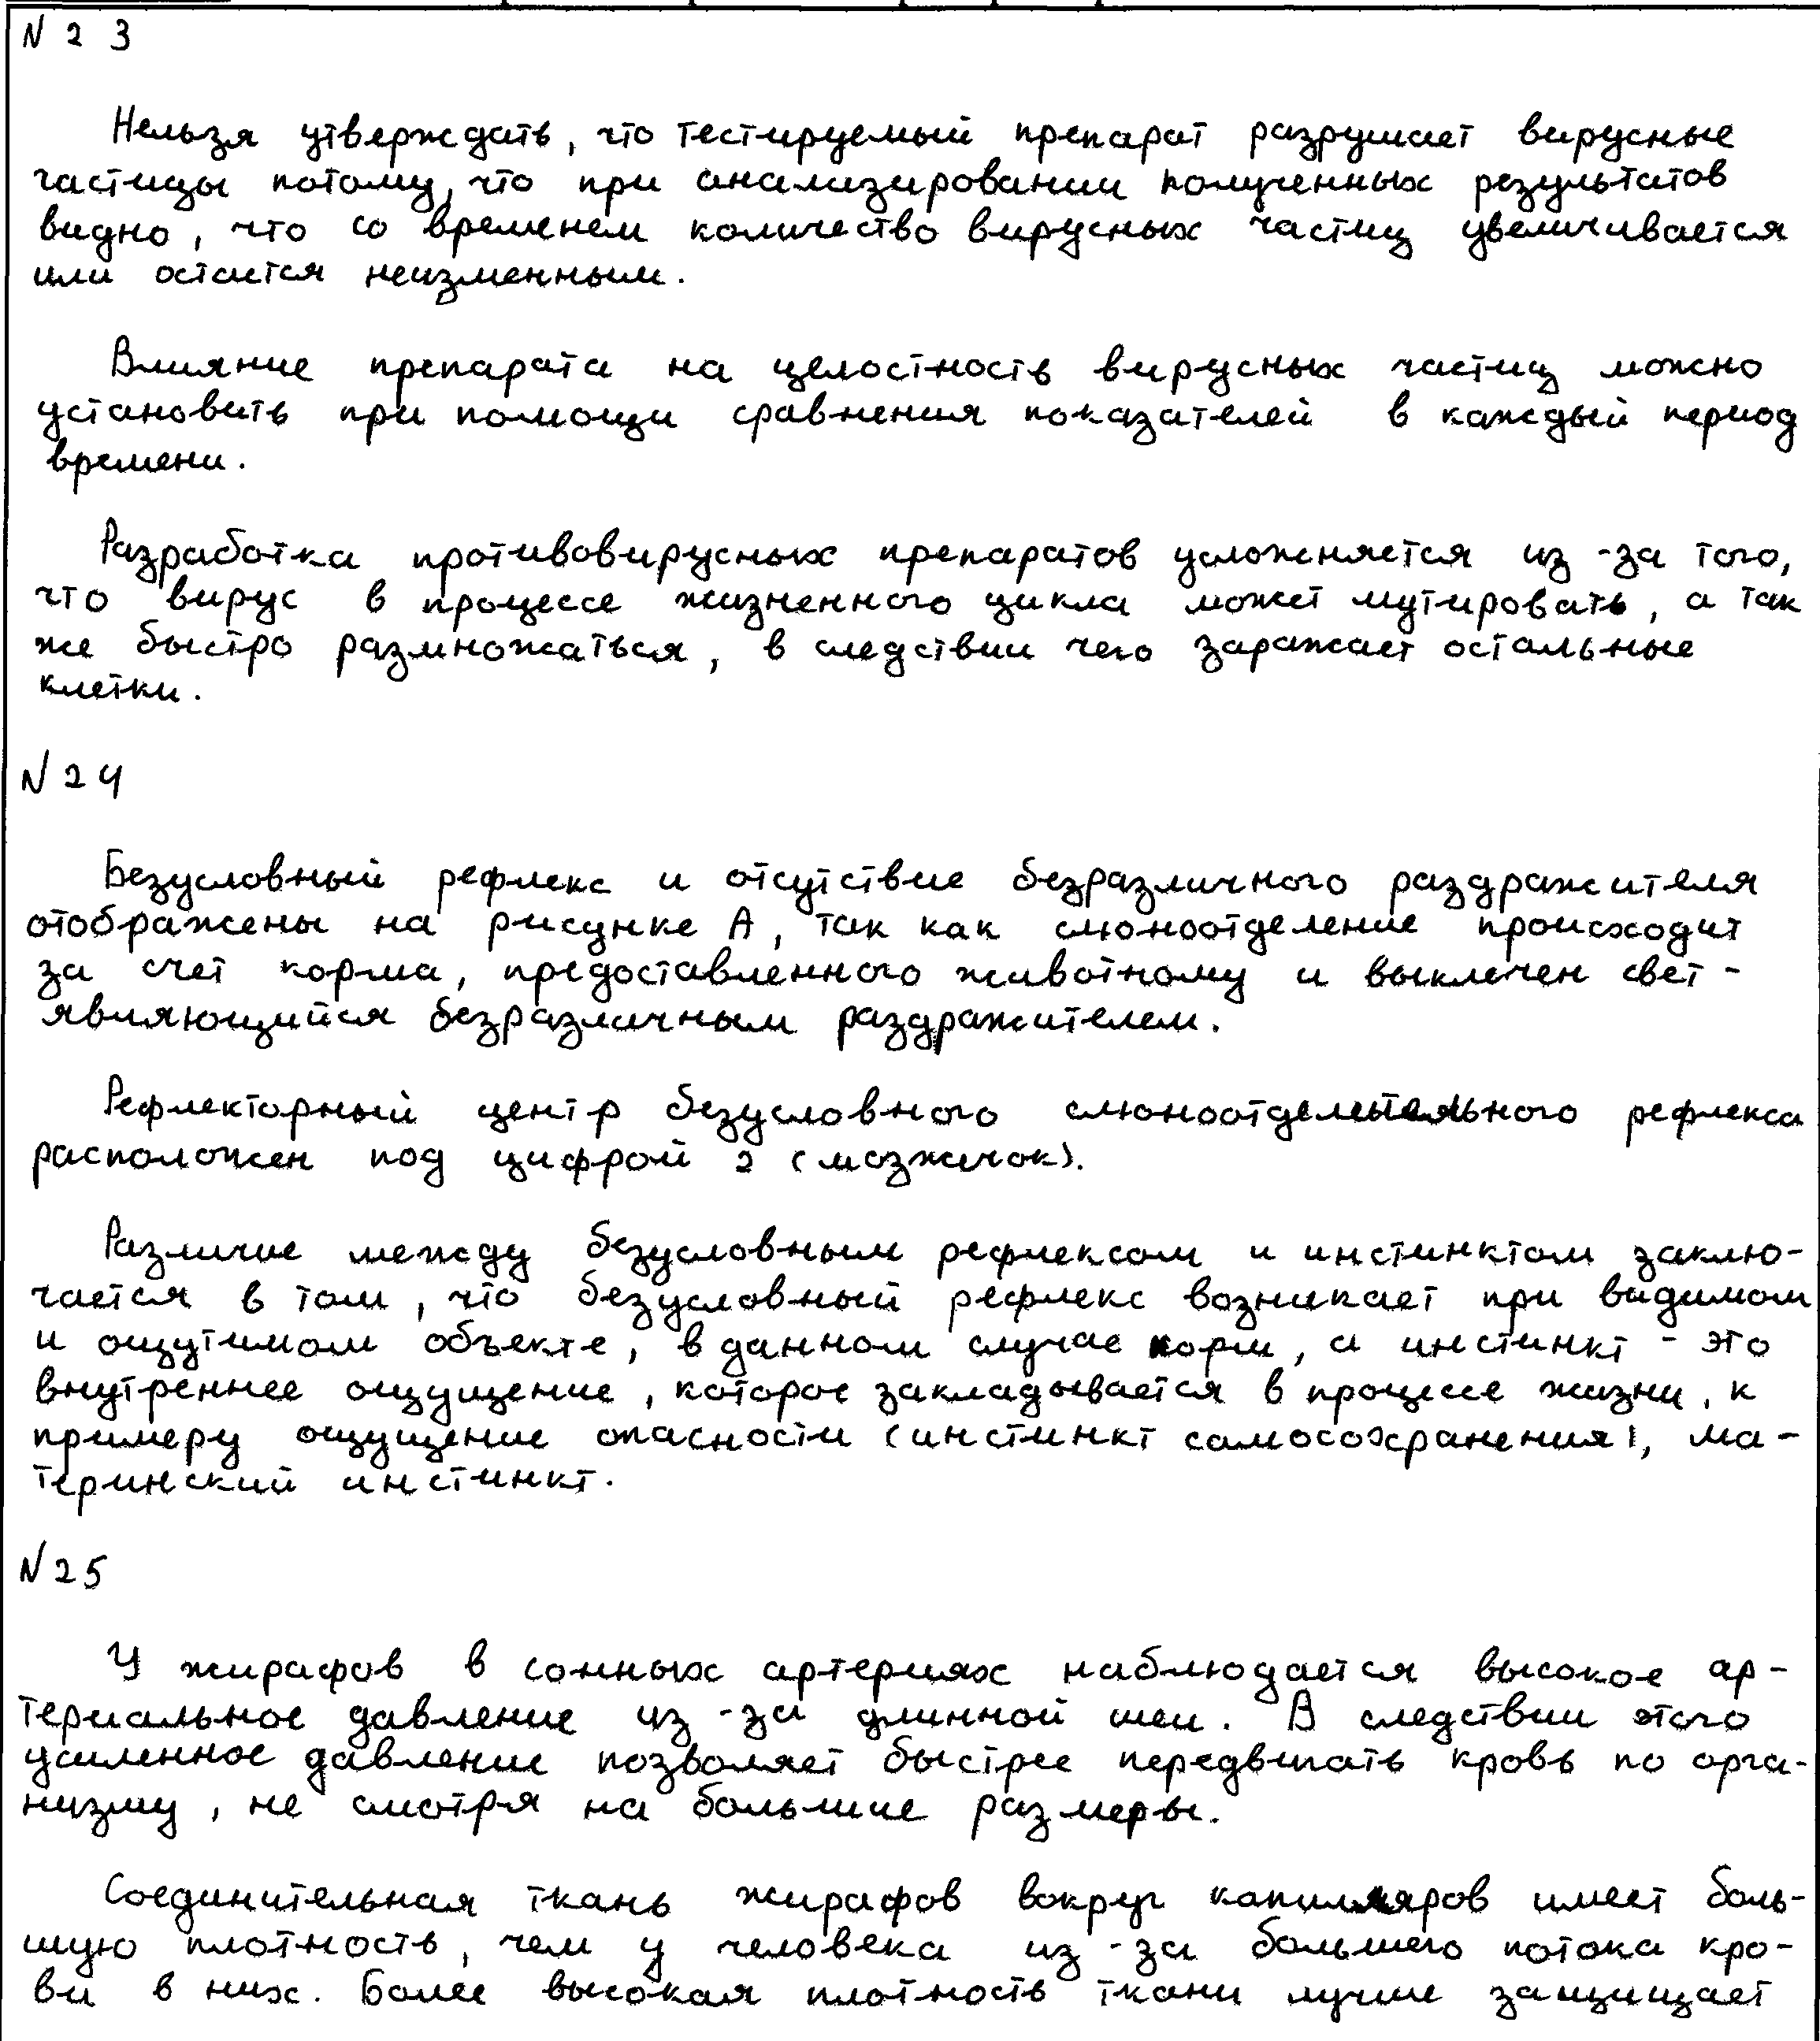 N 2 3
Нельзя утверждать, что тестируемый препарат разрушает вирусные
частицы потому, что при анализировании полученных результатов
видно, что со временем количество вирусных частиц увеличивается
или остается неизменным.
Влияние препарата на целостность вирусных частиц можно
установить при помощи сравнения показателей в каждый период
времени.
Разработка противовирусных препаратов усложняется из-за того,
что вирус в процессе жизненного цикла может мутировать, а так
же быстро размножаться, в следствии чего заражает остальные
клетки.
N 24
Безусловный рефлекс и отсутствие безразличного раздражителя
отображены на рисунке А, так как слюноотделение происходит
за счет корма, предоставленного животному и выключен свет -
являющийся безразличным раздражителем.
Рефлекторный центр безусловного слюноотделительного рефлекса
расположен под цифрой 2 (мозжечок).
Различие между безусловным рефлексом и инстинктом заклю-
чается в том, что безусловный рефлекс возникает при видимом
и ощутимом объекте, в данном случае корм, а инстинкт - это
внутреннее ощущение, которое закладывается в процессе жизни, к
примеру ощущение опасности (инстинкт самосохранения), ма-
теринский инстинкт.
N 25
У жирафов в сонных артериях наблюдается высокое ар-
териальное давление из-за длинной шеи. В следствии этого
усиленное давление позволяет быстрее передвигать кровь по орга-
низму, не смотря на большие размеры.
Соединительная ткань жирафов вокруг капилляров имеет боль-
шую плотность, чем у человека из-за большего потока кро-
ви в них. Более высокая плотность ткани лучше защищает